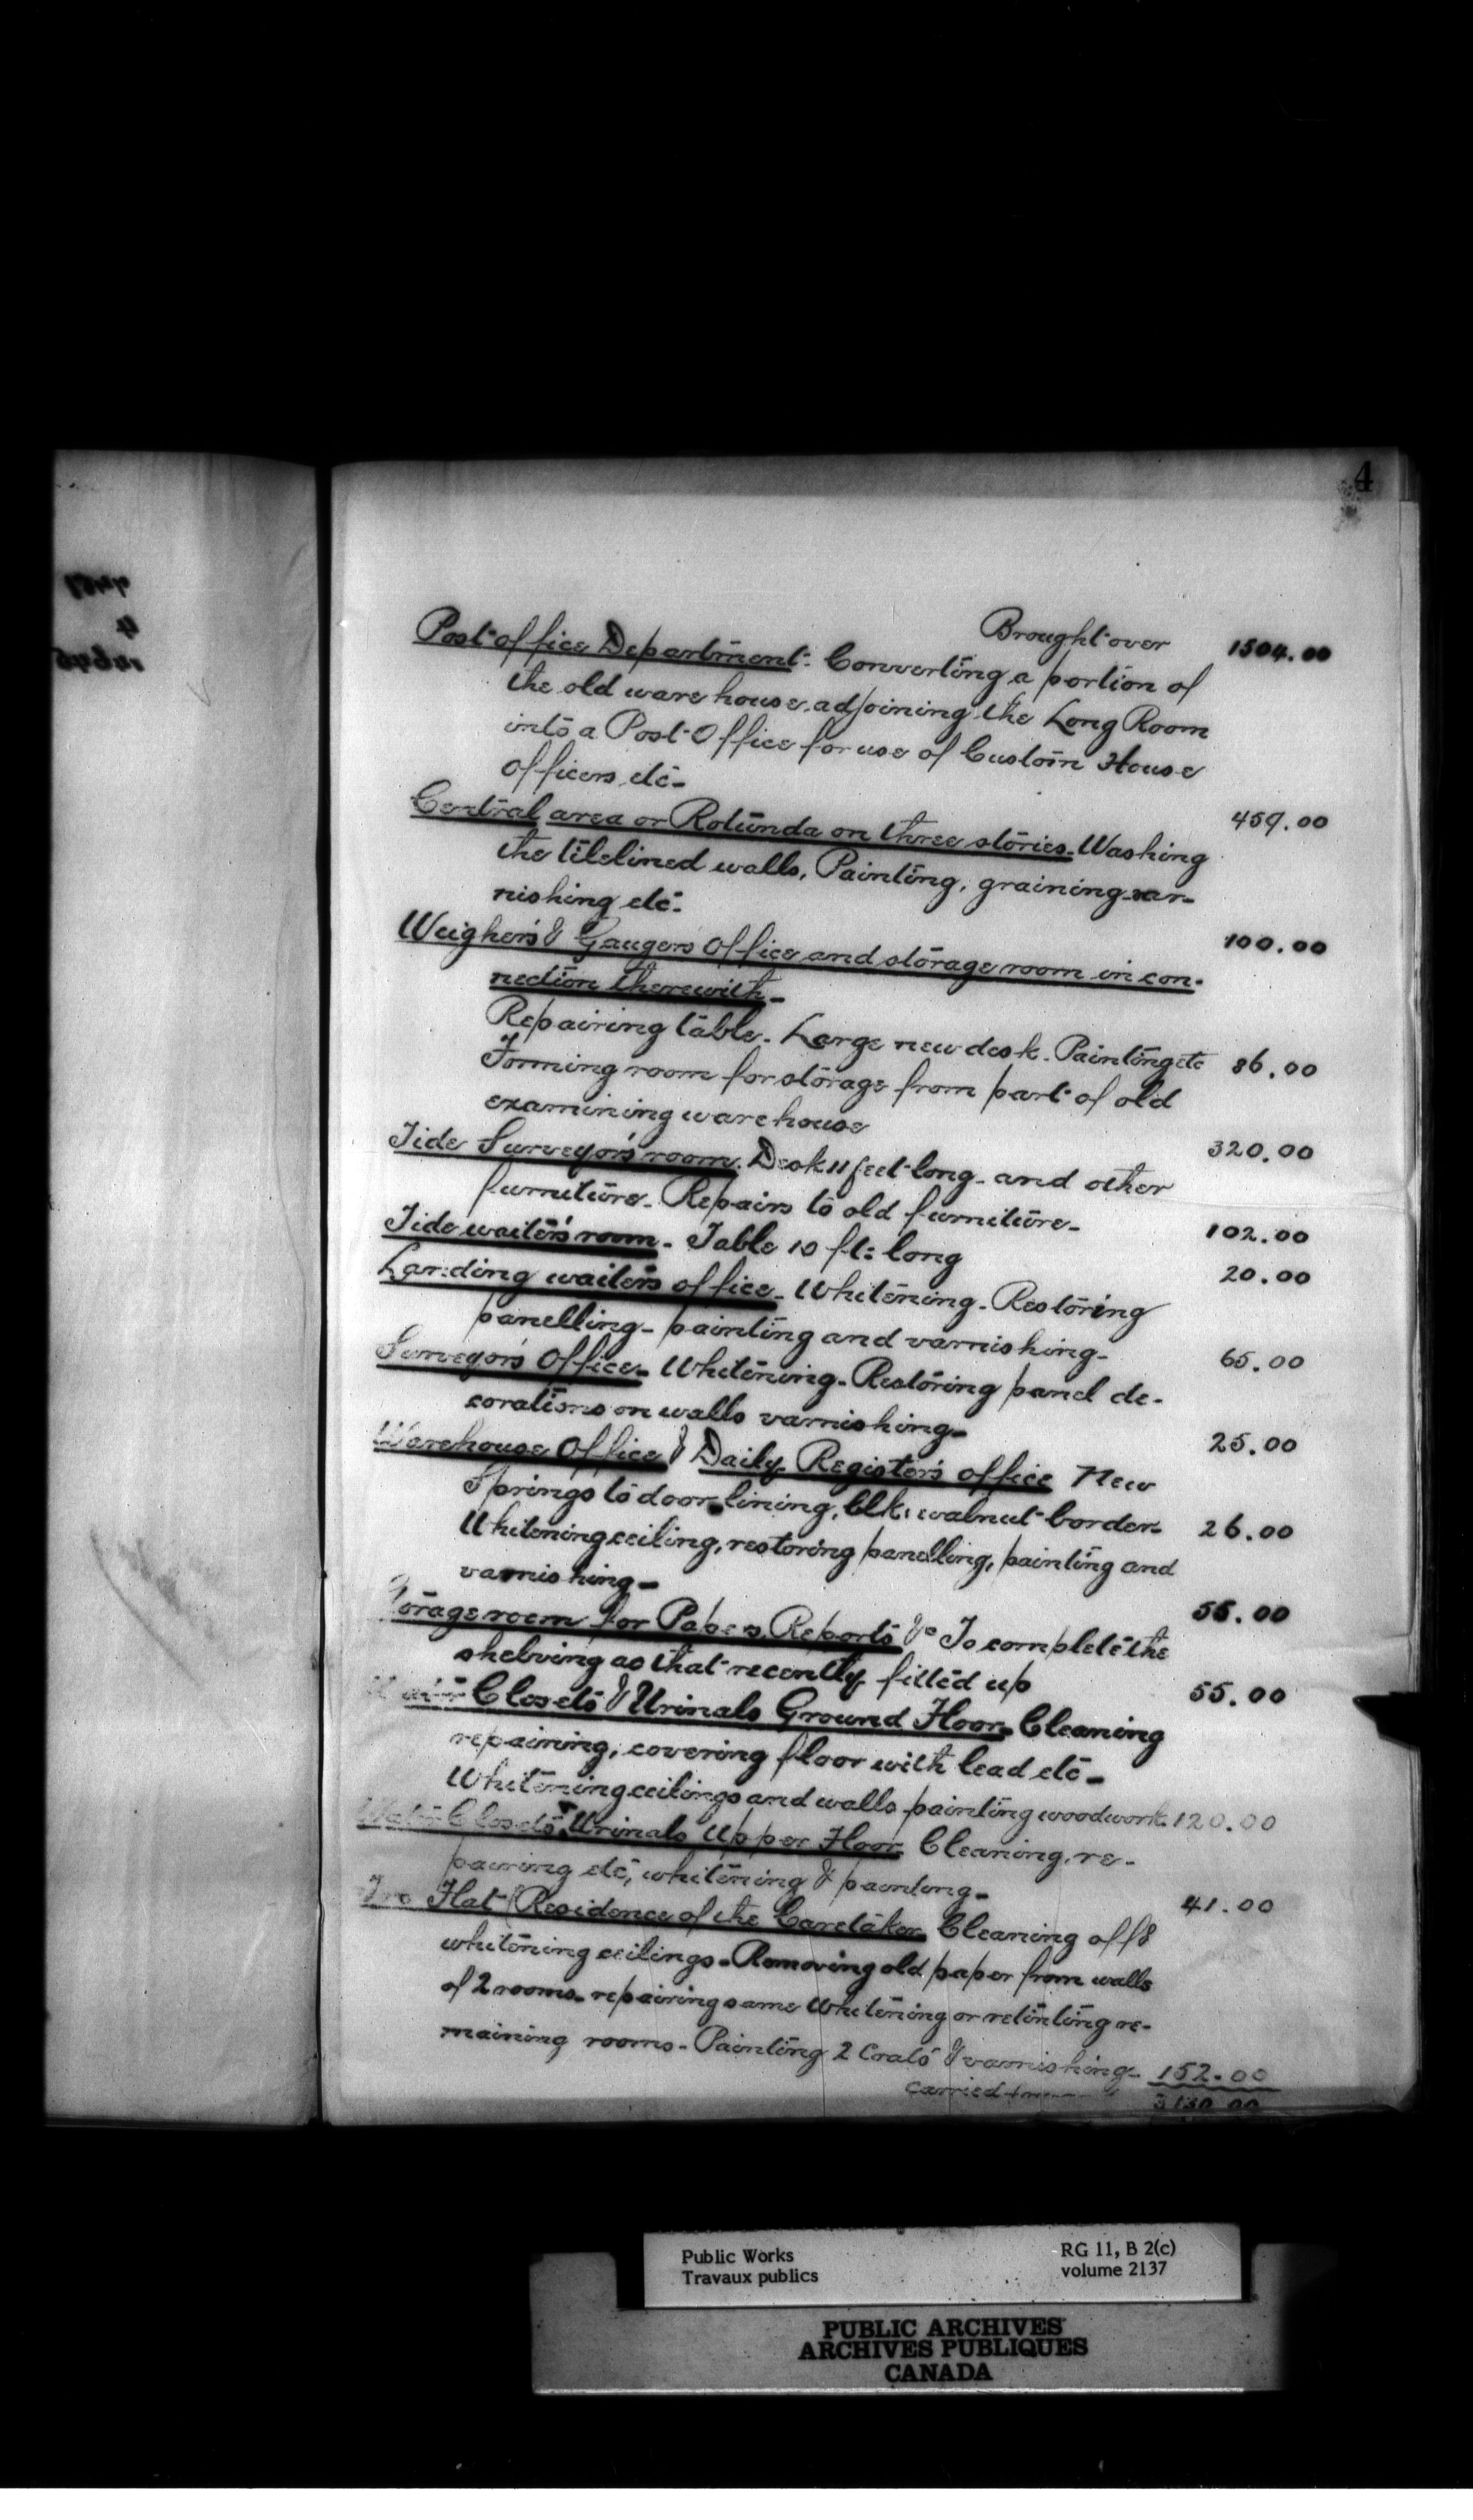 4
Brought over 1504.00
Post office Department: Converting a portion of
the old warehouse, adjoining the Long Room
into a Post Office for use of Custom House
officers etc- 459.00
Central area or Rotunda on three stories- Washing
the tilelined walls, Painting, graining var-
nishing etc. 100.00
Weighers & Gaugers Office and storage room in con-
nection therewith-
Repairing table. Large new desk. Painting etc 86.00
Forming room for storage from part of old
examining warehouse 320.00
Tide Surveyor's room. Desk 11 feet long- and other
furniture- Repairs to old furniture- 102.00
Tide waiter's room- Table 10 ft: long 20.00
Landing waiters office- Whitening- Restoring
panelling- painting and varnishing- 65.00
Surveyor's Office- Whitening- Restoring panel de-
corations on walls varnishing- 25.00
Warehouse Office & Daily Register's office New
Springs to door lining, blk, walnut border- 26.00
Whitening ceiling, restoring panelling, painting and
varnishing- 55.00
Storage room for Papers, Reports &c To complete the
shelving as that recently fitted up 55.00
Water Closets & Urinals Ground Floor- Cleaning
repairing, covering floor with lead etc-
Whitening ceilings and walls painting woodwork 120.00
Water Closets, Urinals Upper Floor, Cleaning, re-
pairing etc, whitening & painting- 41.00
Flat (Residence of the Caretaker- Cleaning off &
whitening ceilings- Removing old paper from walls
of 2 rooms- repairing same Whitening or retinting re-
maining rooms- Painting 2 Coats & varnishing- 152.00
Carried 3130.00
Public Works
Travaux publics
RG 11, B 2(c)
volume 2137
PUBLIC ARCHIVES
ARCHIVES PUBLIQUES
CANADA